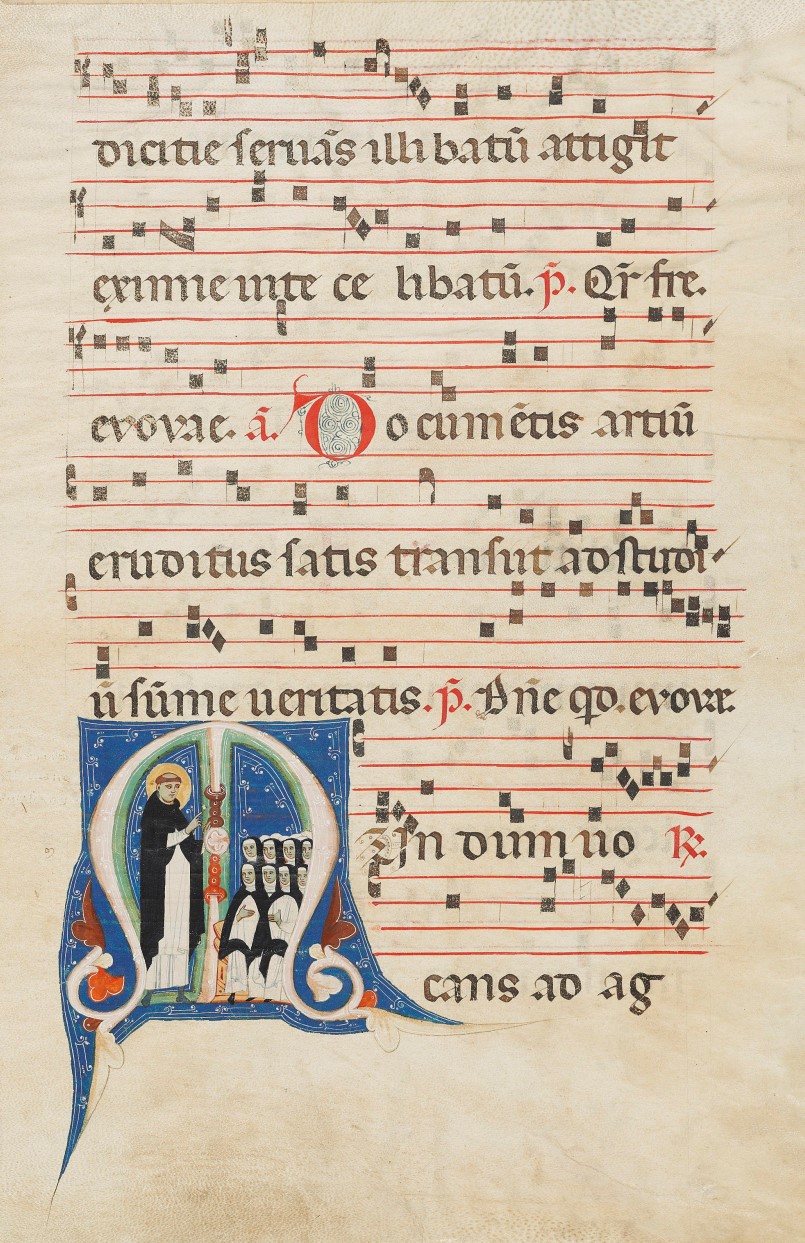 dicitie seruãs illi batũ attigit
eximie uite ce libatũ. p̃. Qr̃ fre.
evovae. ã. Documẽtis artiũ
eruditus satis transiit ad studi
ũ sũme ueritatis. p̃. Dñe qd. evovae.
Mundum uo ℟.
cans ad ag